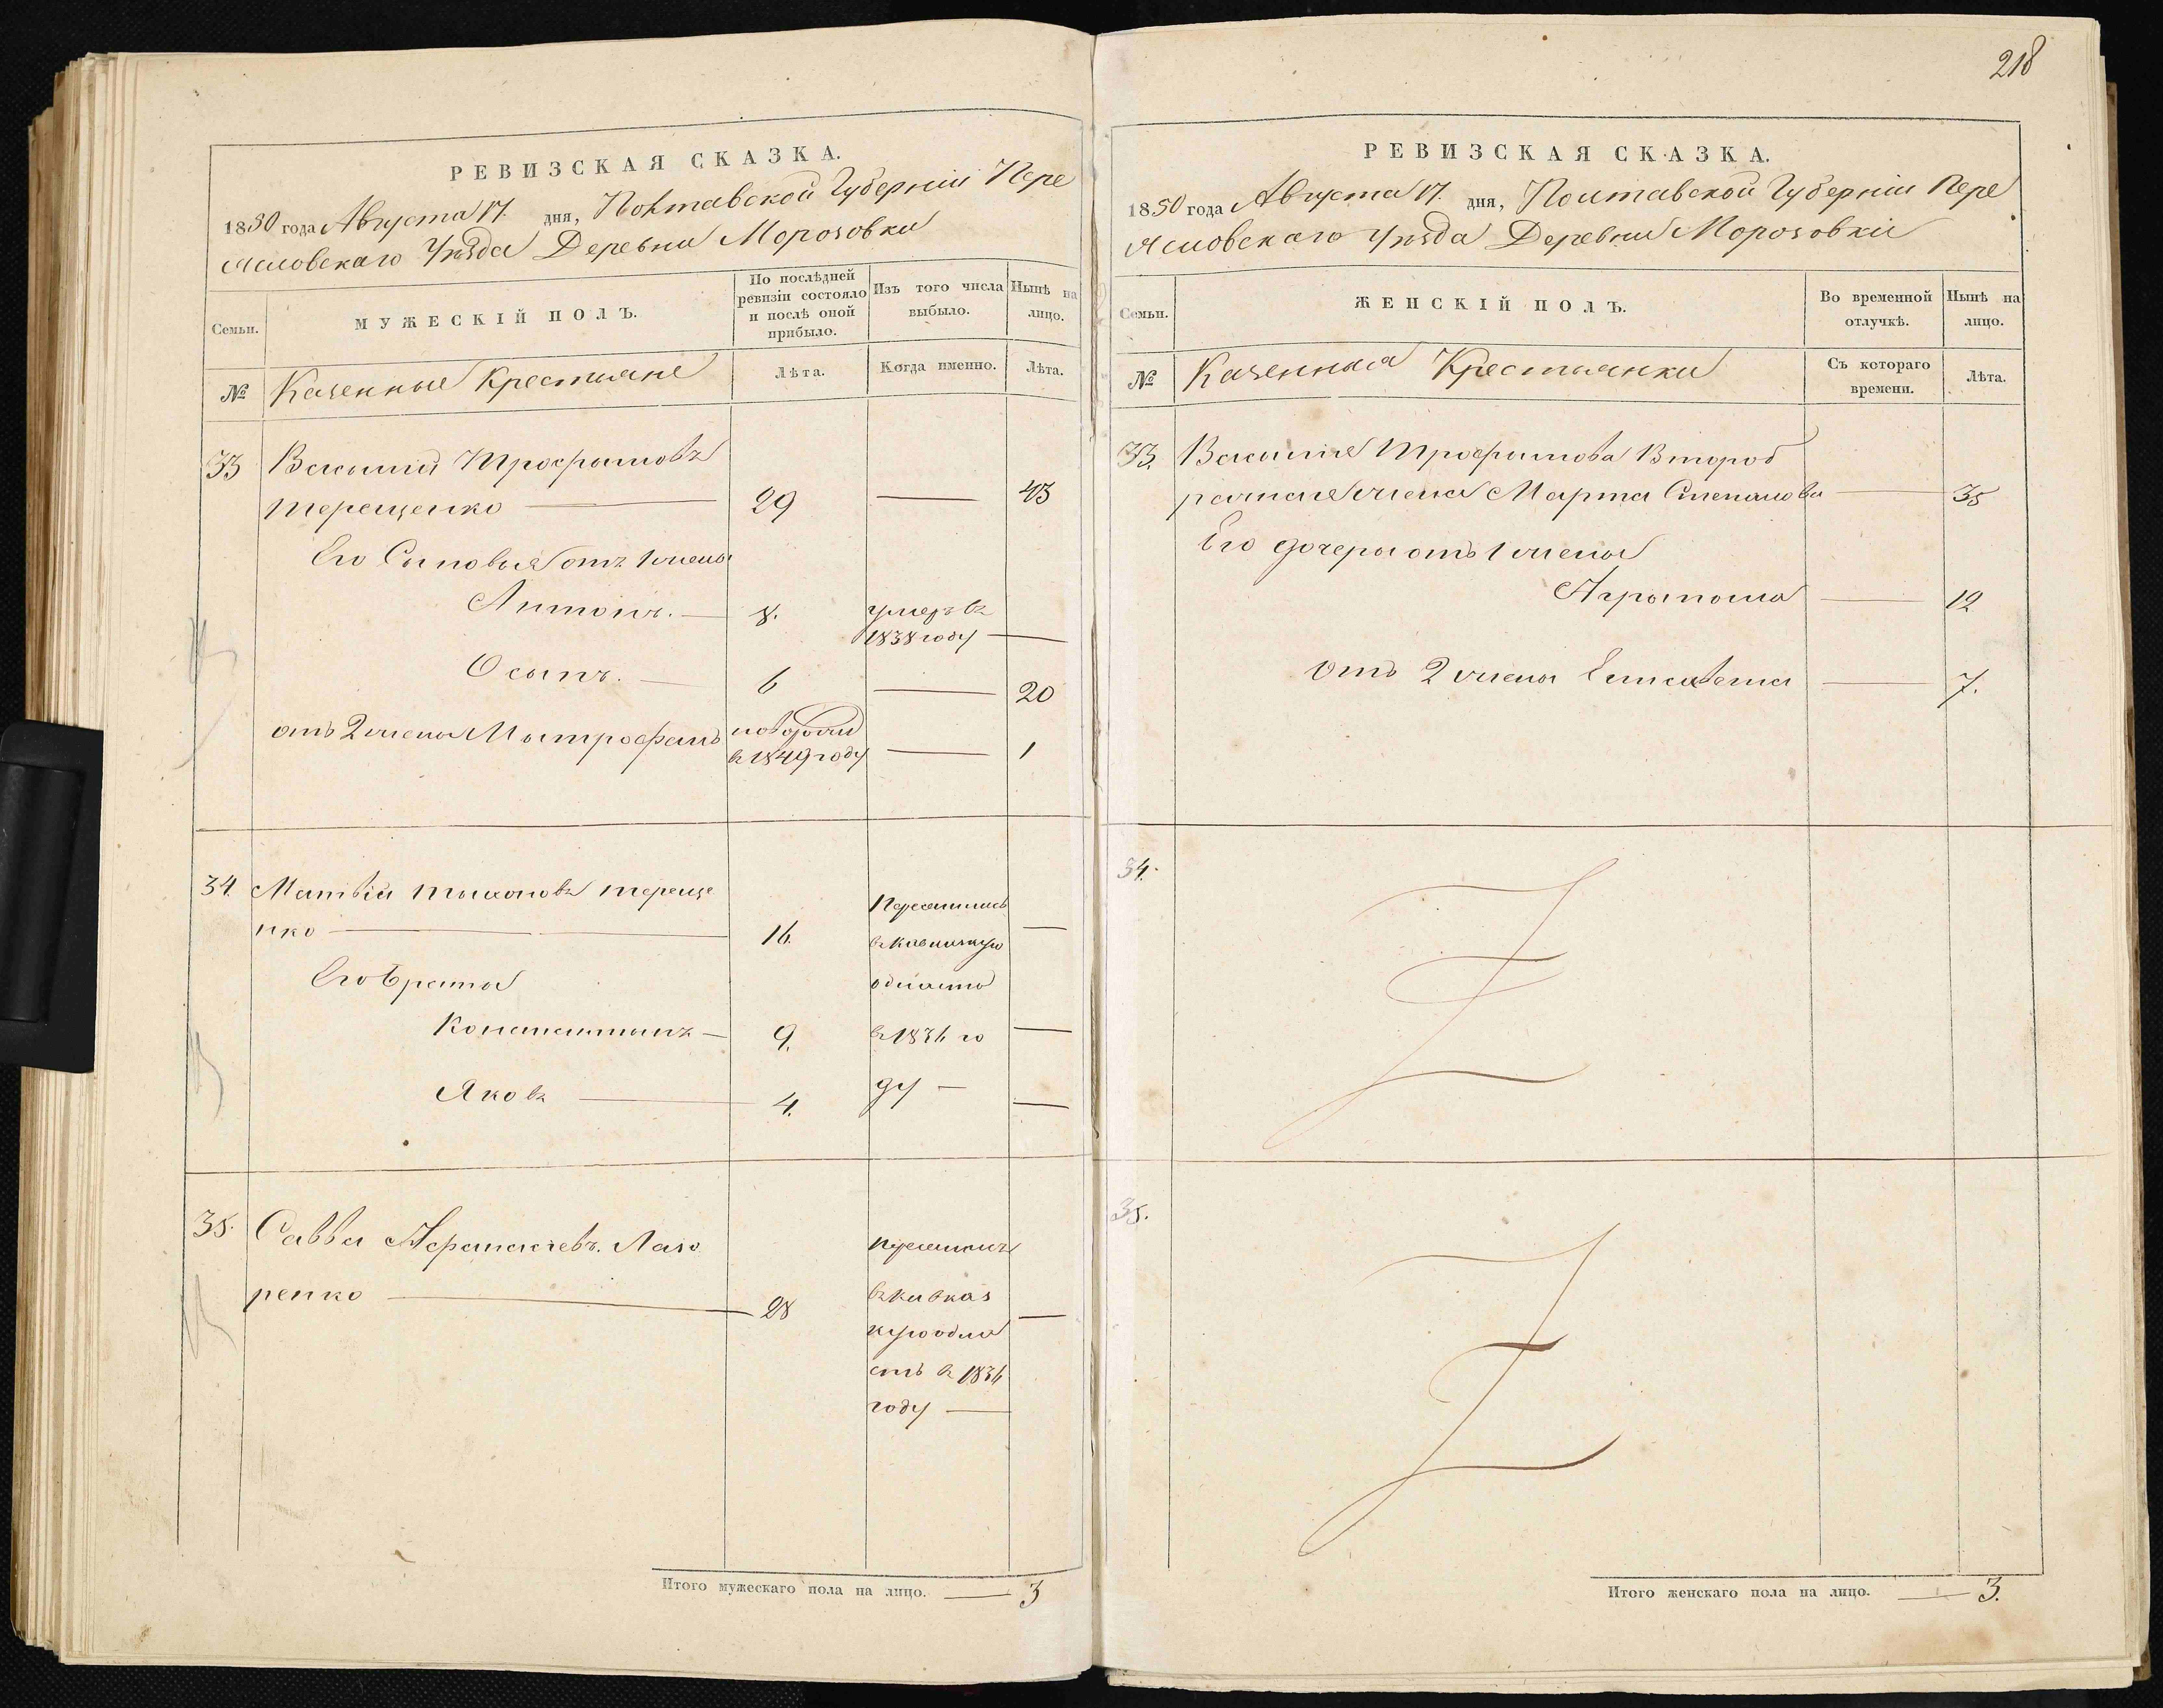 РЕВИЗСКАЯ СКАЗКА.
1850 года Августа 17. дня, Полтавской Губерніи Пере
яславскаго Уѣзда Деревни Морозовки
Семьи.
МУЖЕСКІЙ ПОЛЪ.
По послѣдней ревизіи состояло и послѣ оной прибыло.
Изъ того числа выбыло.
Нынѣ на лицо.
№
Казенные Крестьяне
Лѣта.
Когда именно.
Лѣта.
33 Василий Трофимовъ
Терещенко — 29 — 43
Его Сыновья отъ 1 жены
Антонъ. — 8. умеръ въ
1838 году —
Осипъ. — 6 — 20
отъ 2 жены Митрофанъ новорожд
в 1849 году — 1
34. Матвій Тихоновъ Тереще
нко — 16. Переселились —
въ Кавказкую
Его братья области
Константинъ — 9. въ 1836 го —
Яковъ — 4. ду — —
35. Савва Афанасіевъ. Лазо
ренко — 28 переселился
въ Кавказ —
кую обла
сть въ 1836
году —
Итого мужескаго пола на лицо. — 3
218
РЕВИЗСКАЯ СКАЗКА.
1850 года Августа 17. дня, Полтавской Губерніи Пере
яславскаго Уѣзда Деревни Морозовки
Семьи.
ЖЕНСКІЙ ПОЛЪ.
Во временной отлучкѣ.
Нынѣ на лицо.
№
Казенныя Крестьянки
Съ котораго времени.
Лѣта.
33. Василія Трофимова Второб
рачная жена Марта Степанова — 35
Его дочеры отъ 1 жены
— 12
отъ 2 жены Елисавета — 7.
34.
35.
Итого женскаго пола на лицо. — 3.